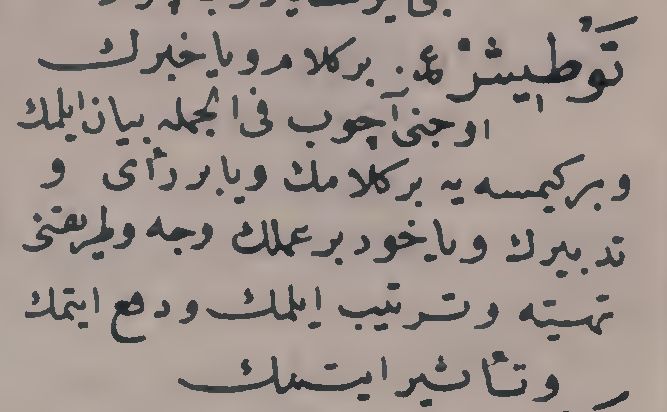 توطيش ع. بر كلامر ويا خبرك
اوجنى آچوب فى الجمله بيان ايلمك
و بر كيمسه يه بر كلامك ويا بر رأى و
تدبيرك ويا خود بر عملك وجه وطريقتنى
تهيئه وترتيب ايلمك ودفع ايتمك
وتأثير ايتمك